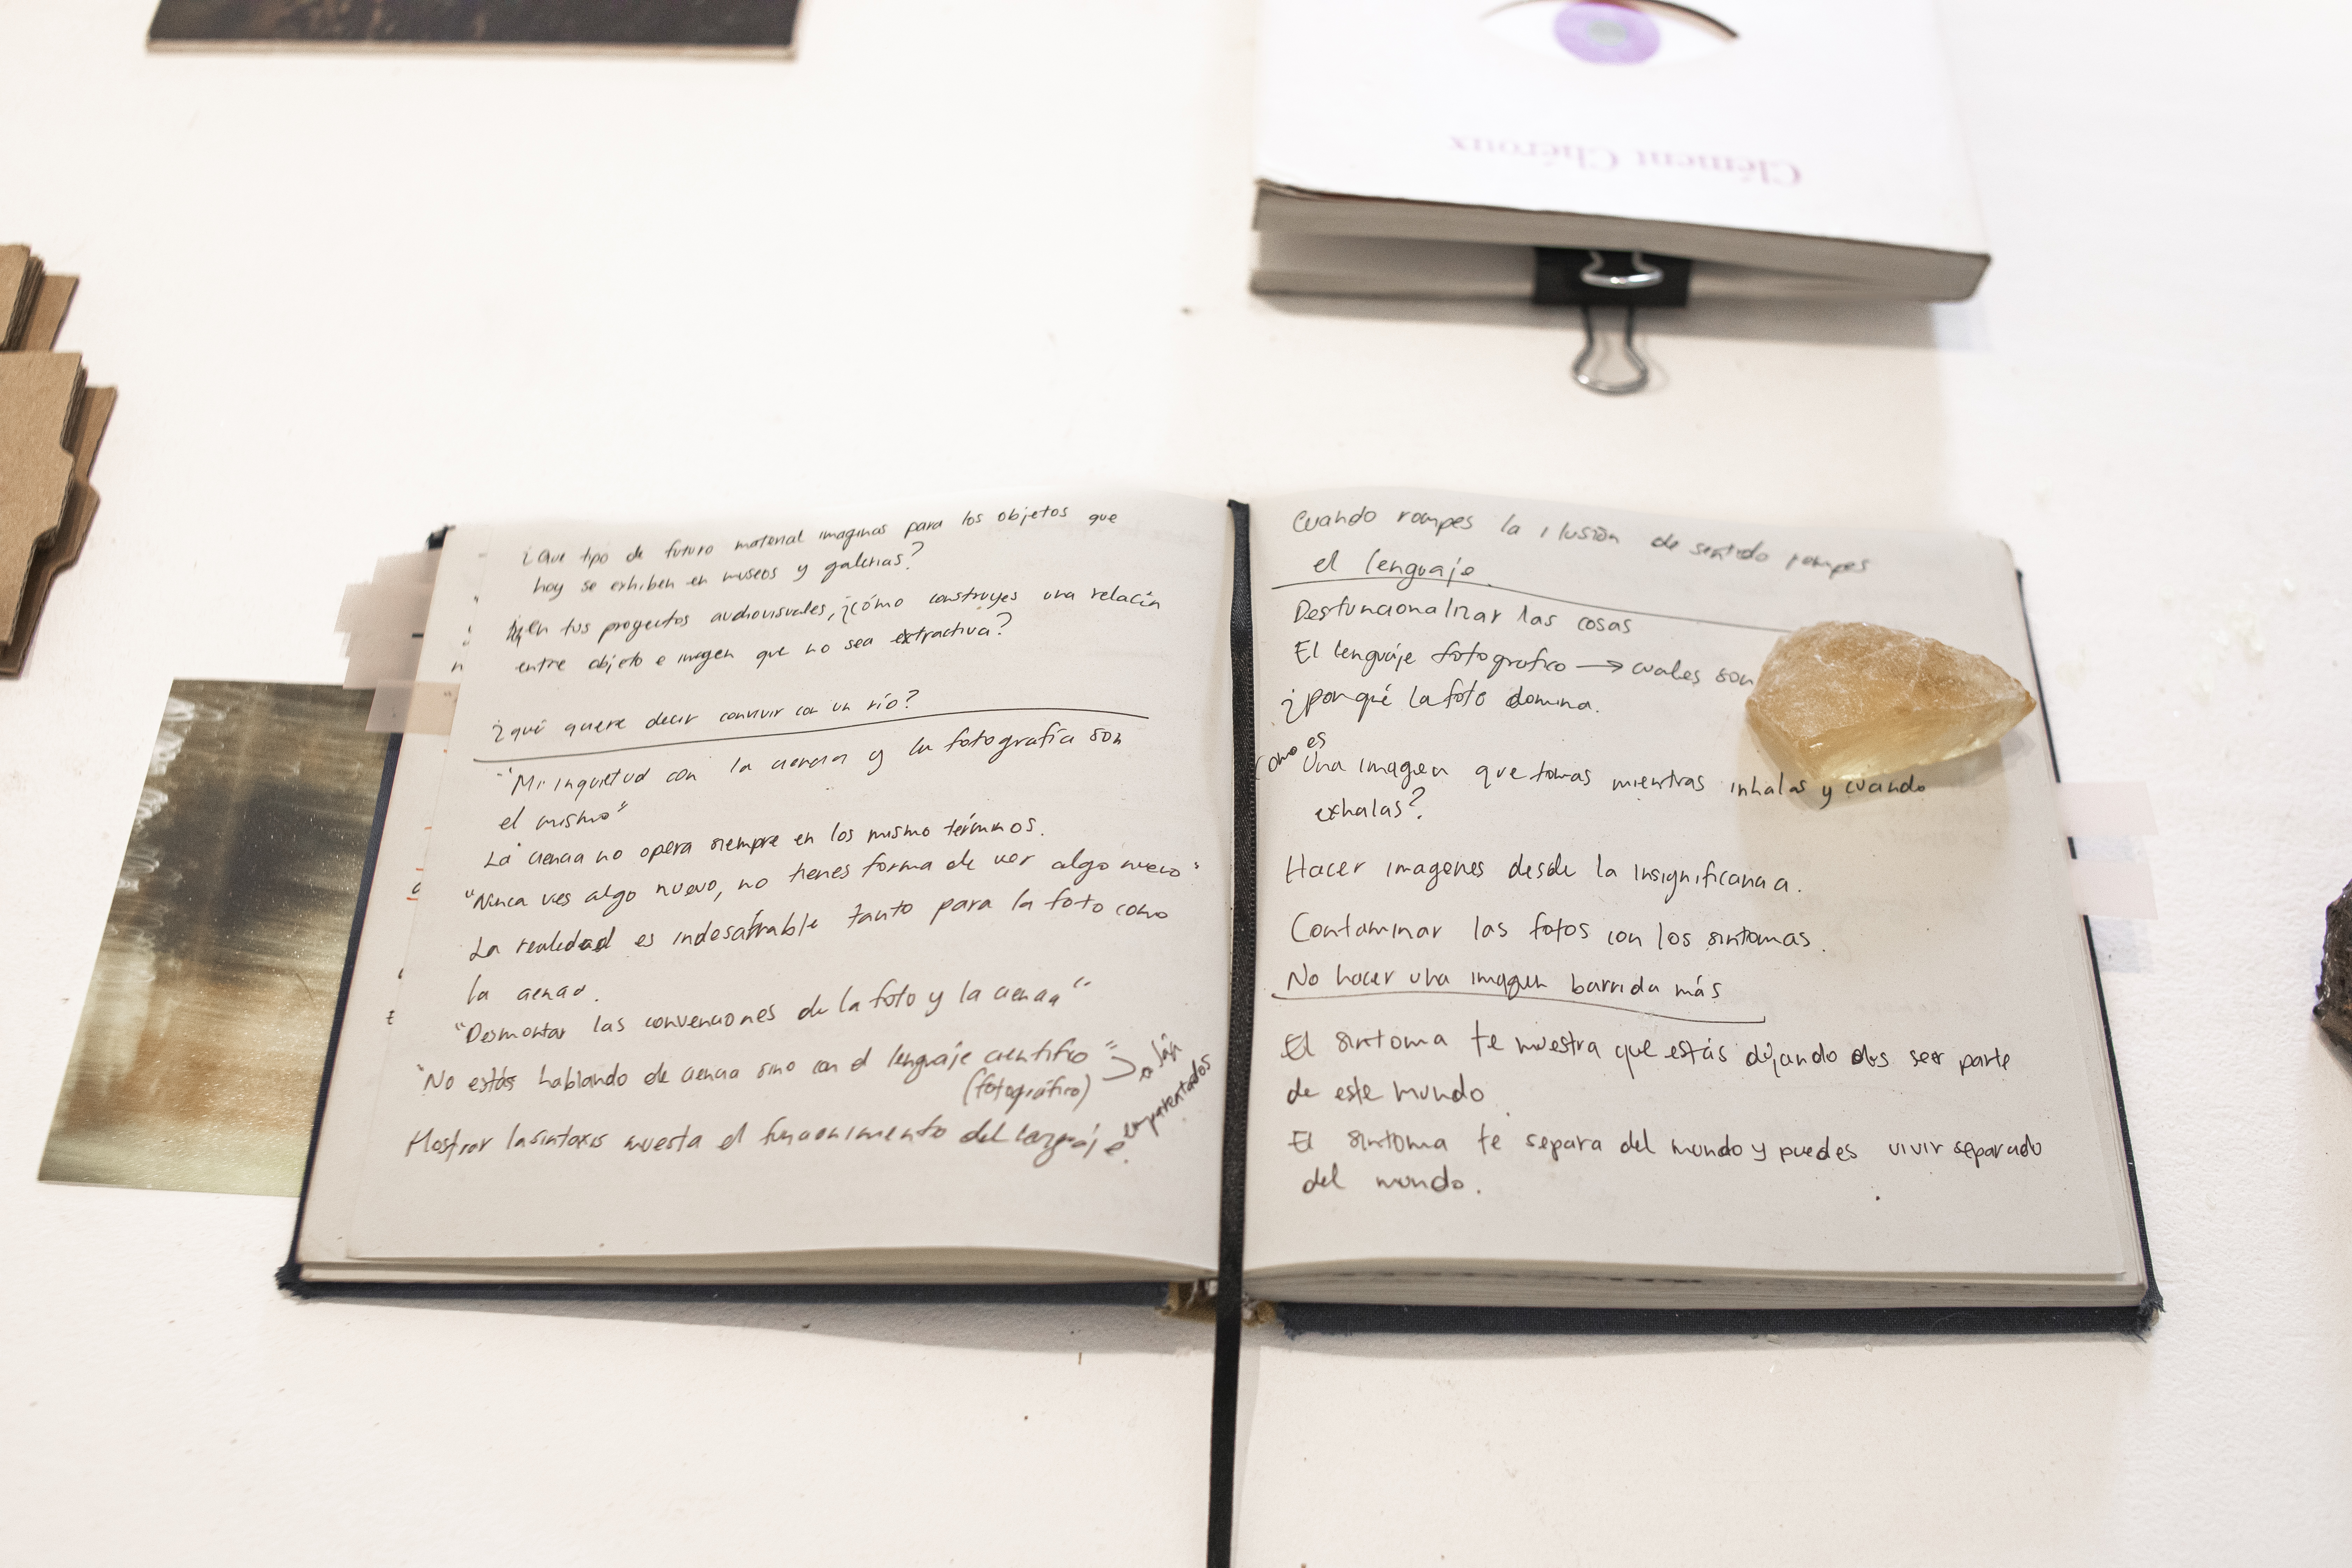 Clément Chéroux
¿Que tipo de futuro material imaginas para los objetos que
hoy se exhiben en museos y galerias?
en tus proyectos audiovisuales, ¿cómo construyes una relación
entre objeto e imagen que no sea extractiva?
¿qué quiere decir convivir con un río?
"Mi inquietud con la ciencia y la fotografía son
el mismo"
La ciencia no opera siempre en los mismo términos.
"Nunca ves algo nuevo, no tienes forma de ver algo nuevo"
La realidad es indesatrable tanto para la foto como
la ciencia.
"Desmontar las convenciones de la foto y la ciencia"
"No estás hablando de ciencia sino con el lenguaje científico"
(fotográfico)
están
emparentados
Mostrar la sintaxis muestra el funcionimiento del lenguaje.
Cuando rompes la ilusión de sentido rompes
el lenguaje.
Desfuncionalizar las cosas
El lenguaje fotografico → cuales son
¿porqué la foto domina.
como es
Una imagen que tomas mientras inhalas y cuando
exhalas?
Hacer imagenes desde la insignificancia.
Contaminar las fotos con los sintomas.
No hacer una imagen barrida más
El sintoma te muestra que estás dejando de ser parte
de este mundo
El sintoma te separa del mundo y puedes vivir separado
del mundo.